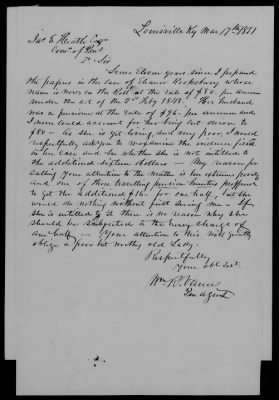 Louisville Ky Mar 17th 1851
Jas E Heath Esqr
Comr of Pens
Dr Sir
Some Eleven years since I prepared
the papers in the case of Eleanor Rocksberry whose
name is now on the Roll at the rate of $80. pr annum
under the act of the 2nd Feby 1848. Her husband
was a pensioner at the rate of $96. pr annum and
I never could account for her being cut down to
$80 – As she is yet living, and very poor, I would
respectfully ask you to reexamine the evidence filed
in her case and see whether she is not entitled to
the additional sixteen dollars – My reason for
calling your attention to the matter is her extreme poverty
and one of these travelling pension hunters proffered
to get the additional $16. for one half, but she
would do nothing without first seeing me – If
she is entitled to it there is no reason why she
should be subjected to the heavy charge of
one half – Your attention to this will greatly
oblige a poor but worthy old Lady.
Respectfully
Your obt Svt.
Wm R. Vance
Pen Agent